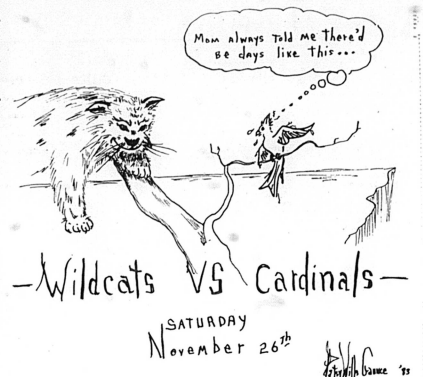 Mom always told me there'd
be days like this...
- Wildcats VS Cardinals -
SATURDAY
November 26th
'83